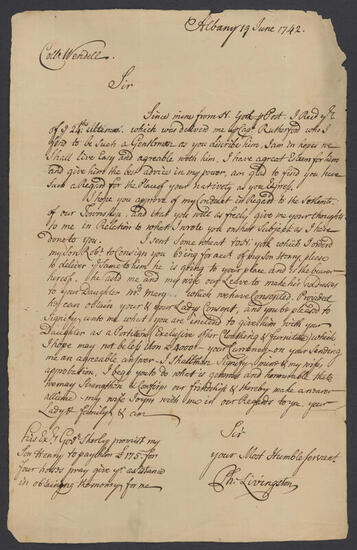 Albany 19 June 1742.
Collo Wendell.
Sir
Since mine from N. York & Post. I Recd yrs
of ye 24th Ultimo. which was delivred me by Capt. Rutherford who I
find to be Such a Gentleman as you describe him. I am in hopes we
Shall live Easy and agreable with him. I have
and give him the best advice in my power, am glad to find you have
Such a Regard for the Place of your Nativety as you Express
I hope you approve of my Conduct in Regard to the
of our Township. and that you will as freely give me your thoughts
to me in Relation to what I wrote you on that Subject as I have
done to you. I sent some wheat to N. York which I ordred
my Son Robt. to Consign you being for acct. of my Son Henry, please
to deliver ye Same to him he is going to your place and is the bearer
hereof. he told me and my wife our Leave to make his addresses
to your Daughter Ms. Mary which we have Consented, Provided
he can obtain your & your Ladys Consent, and you be pleased to
Signify unto me what you are inclined to give him with your
Daughter as a Portion Exclusive of her Cloathing & furniture which
I hope may not be less then £ 2000 your Currency. on your Sending
me an agreeable answer I shall then Signify yours & my wifes
approbation, I beg you to do what is generous and honourable that
it may Strengthen & Confirm our friendship & thereby make a nearer
allience my wife Joyns with me in our Regards to you your
Lady & family & am
Sir
your Most Humble Servant
Ph: Livingston
his Ex. Govr. Shirley promist my
Son Henry to pay him £ 175. for
four horses pray give yr assistance
in obtaining the money for me